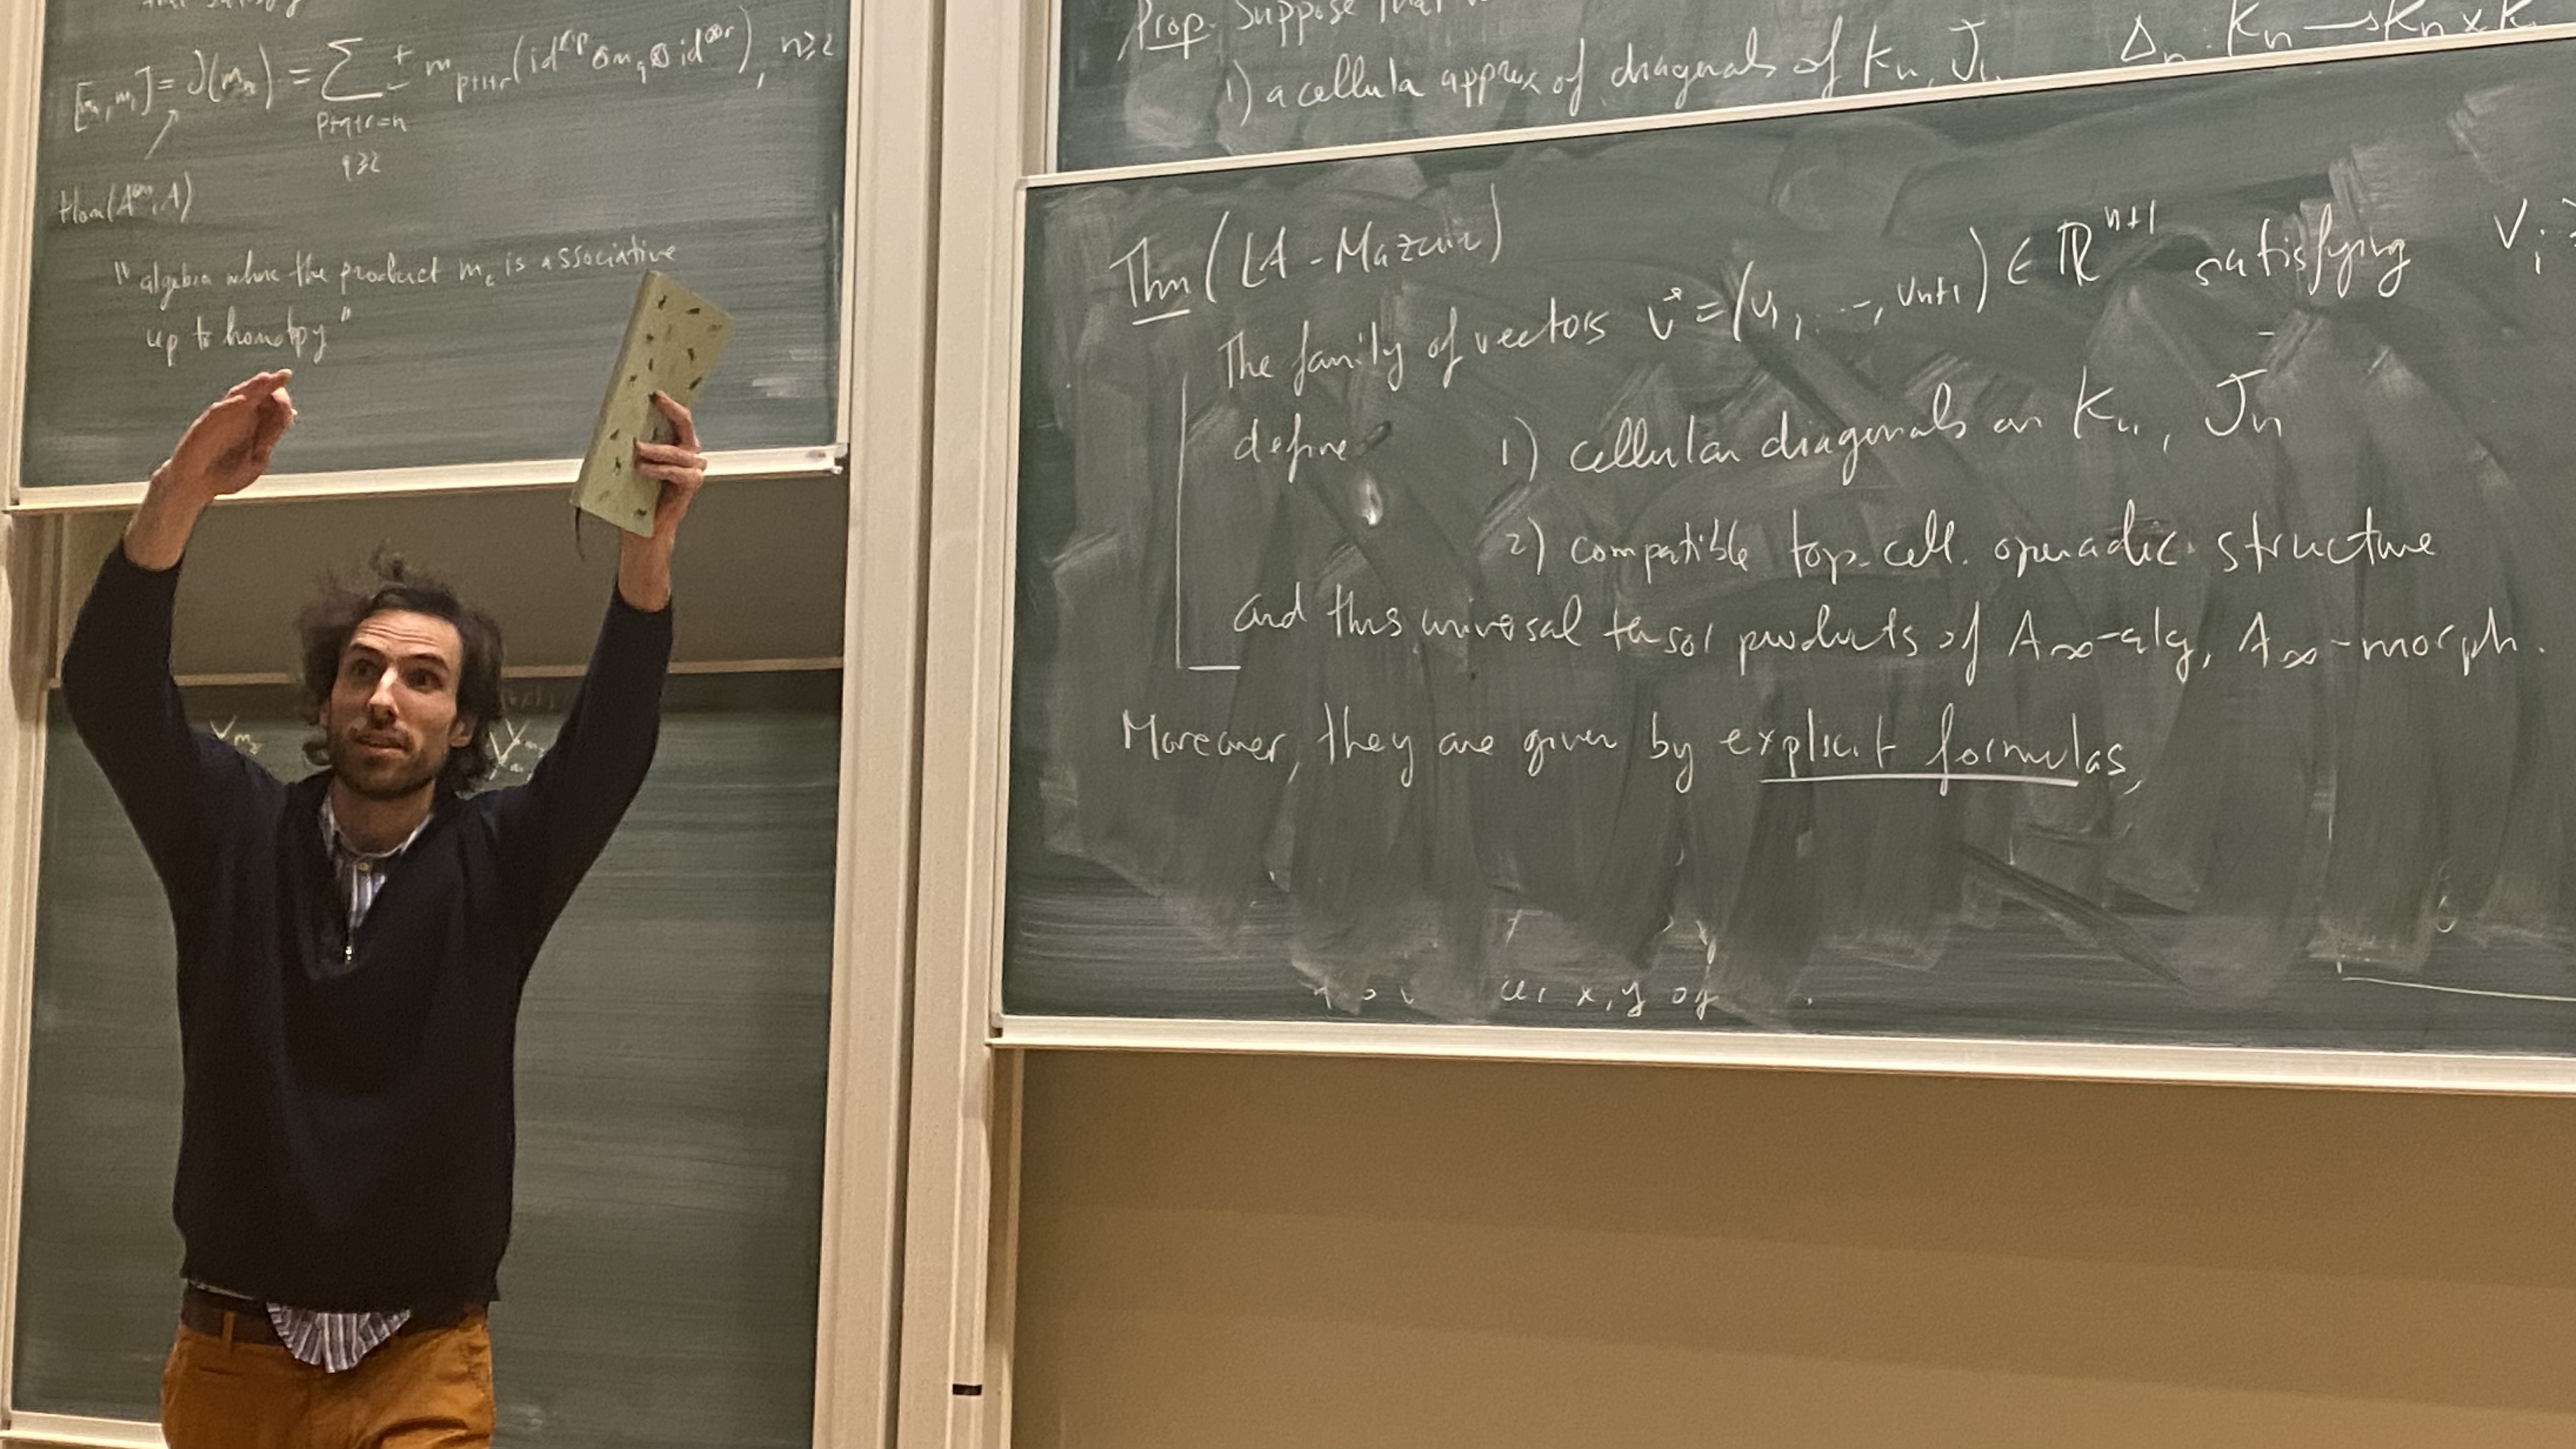 [m_n, m_1] = ∂(m_n) = ∑ ± m_{p+1+r}(id^{⊗p} ⊗ m_q ⊗ id^{⊗r}), n≥2
p+q+r=n
q≥2
Hom(A^{⊗n}, A)
"algebra where the product m_2 is associative
up to homotopy"
m_2
Prop. Suppose that
1) a cellula approx of diagonals of K_n, J_n Δ_n: K_n → K_n × K
Thm (LA - Mazuir)
The family of vectors v⃗ = (v_1, ..., v_{n+1}) ∈ ℝ^{n+1} satisfying v_i >
define 1) cellular diagonals on K_n, J_n
2) compatible top. cell. operadic structure
and thus universal tensor products of A∞-alg, A∞-morph.
Moreover, they are given by explicit formulas,
x, y of